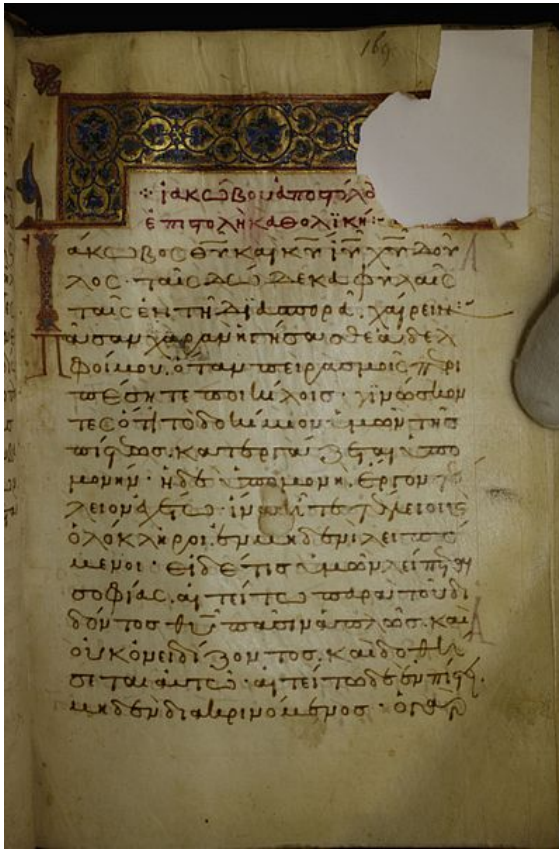 169
ἰακώβου ἀποστόλο
ἐπιστολὴ καθολϊκή
Ιάκωβος θῡ καὶ κῡ ῑῡ χῡ δοῦ
λος· ταῖς δώδεκα φυλαῖς
ταῖς ἐν τῆ διασπορᾶ. χαίρειν:
Πᾶσαν χαρὰν ἡγήσασθε ἀδελ
φοί μου. ὅταν πειρασμοῖς περι
πέσητε ποικίλοις· γινώσκον
τες ὅτι τὸ δοκίμιον ὑμῶν τῆς
πίστεως. κατεργάζεται ὑπο
μονήν· ἡ δὲ ὑπομονὴ. ἔργον τέ
λειον ἐχέτω· ἵνα ἦτε τέλειοι καὶ
ὁλόκληροι. ἐν μηδενὶ λειπό
μενοι· εἰ δέ τις ὑμῶν λείπεται
σοφίας. αἰτείτω παρὰ τοῦ δι
δόντος θῡ πᾶσιν ἁπλῶς. καὶ
οὐκ ὀνειδίζοντος. καὶ δοθή
σεται αὐτῶ· αἰτείτω δὲ ἐν πίστει.
μηδὲν διακρινόμενος· ὁ γὰρ